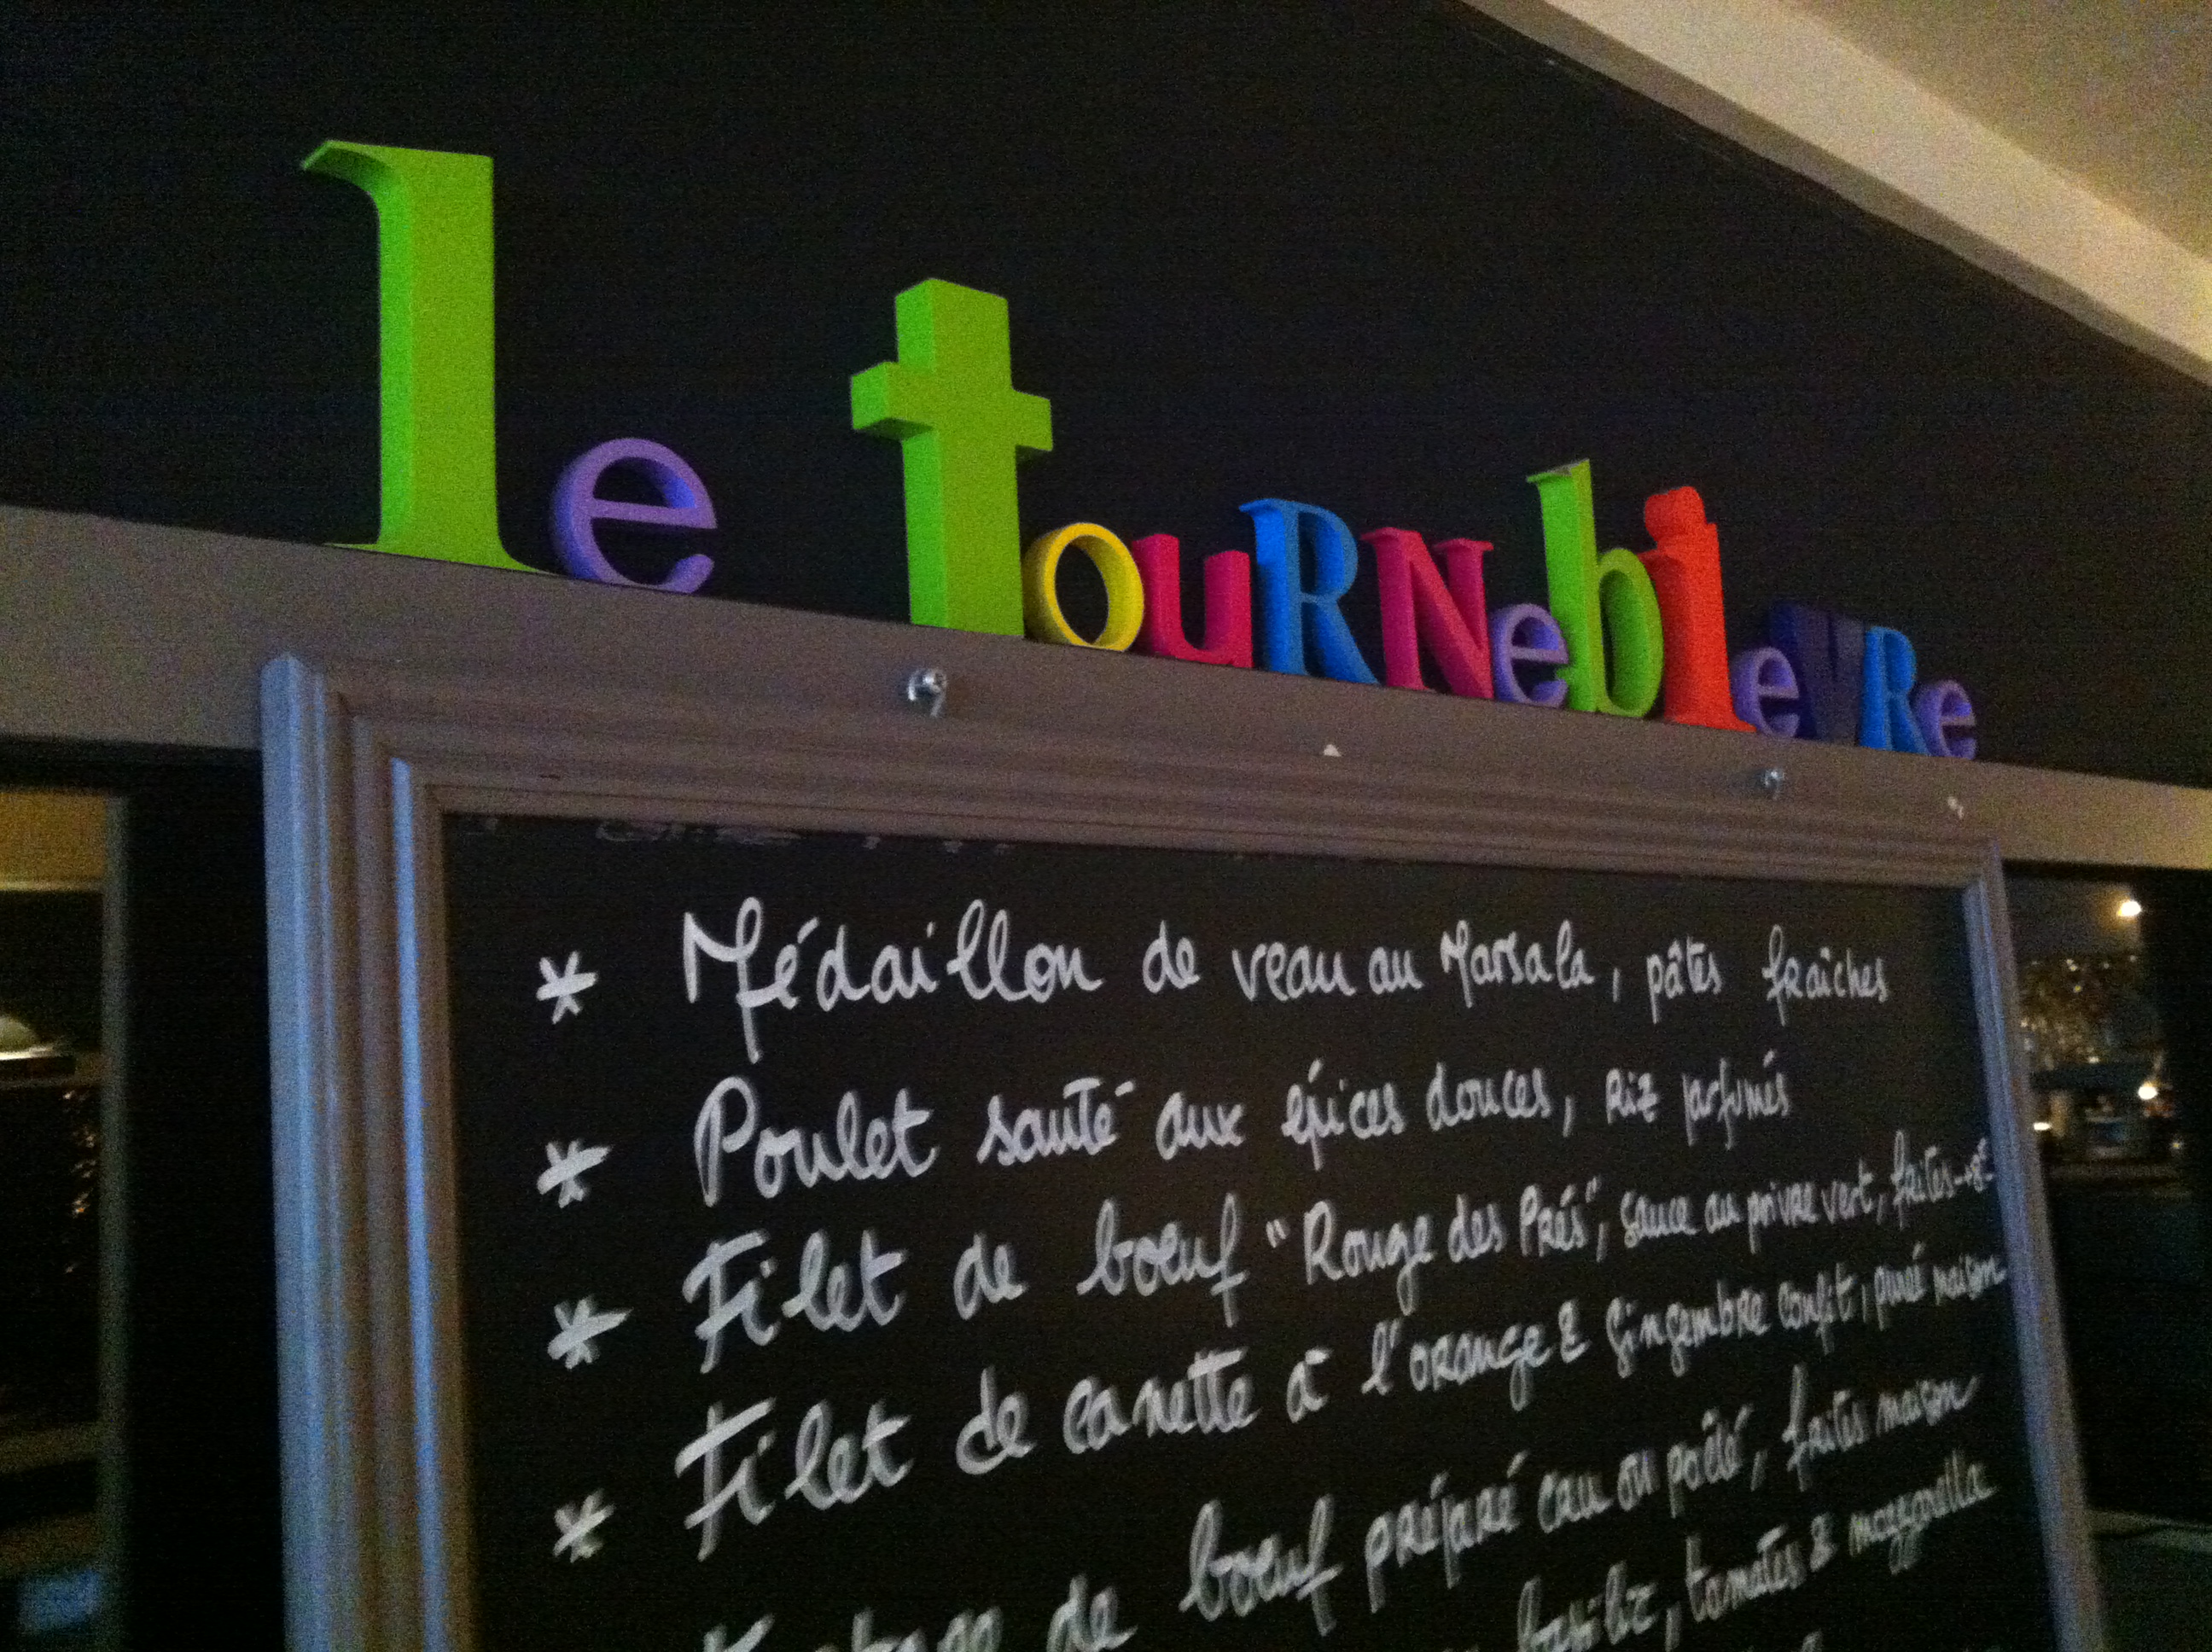 le touRNebieVRe
* Médaillon de veau au Marsala, pâtes fraîches
* Poulet sauté aux épices douces, Riz parfumés
* Filet de bœuf "Rouge des Prés", sauce au poivre vert, frites
* Filet de canette à l'orange & gingembre confit, purée maison
de bœuf préparé cru ou poêlé, frites maison
basilic, tomates & mozzarella